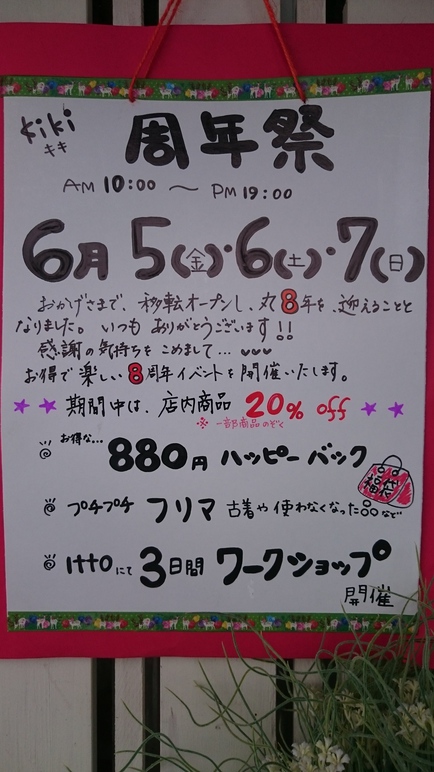 kiki
キキ
周年祭
AM 10:00 〜 PM 19:00
6月 5(金)・6(土)・7(日)
おかげさまで、移転オープンし、丸8年を、迎えることと
なりました。いつも ありがとうございます!!
感謝の気持ちを こめまして…
お得で楽しい 8周年イベントを開催いたします。
★★ 期間中は、店内商品 20% off ★★
※一部商品のぞく
お得な…
880円 ハッピーバック
福袋
プチプチ フリマ 古着や使わなくなった品など
Itto にて 3日間 ワークショップ
開催